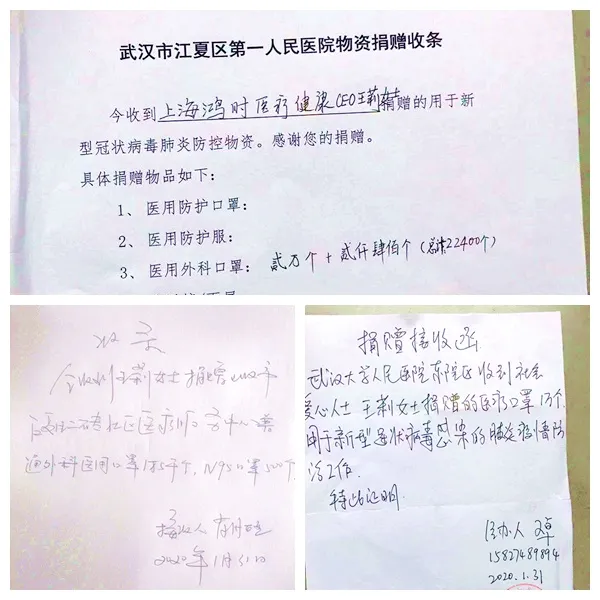 武汉市江夏区第一人民医院物资捐赠收条
今收到上海鸿时医疗健康CEO王莉捐赠的用于新
型冠状病毒肺炎防控物资。感谢您的捐赠。
具体捐赠物品如下:
1、医用防护口罩:
2、医用防护服:
3、医用外科口罩: 贰万个 + 贰仟肆佰个 (总共22400个)
收条
今收到王莉女士捐赠
社区医疗
通外科医用口罩 N95口罩500个
接收人
2020年1月31日
捐赠接收函
武汉大学人民医院东院区收到社会
爱心人士 王莉女士捐赠的医疗口罩1万个
用于新型冠状病毒感染的肺炎疫情防
治工作.
特此证明.
经办人
15827489894
2020.1.31